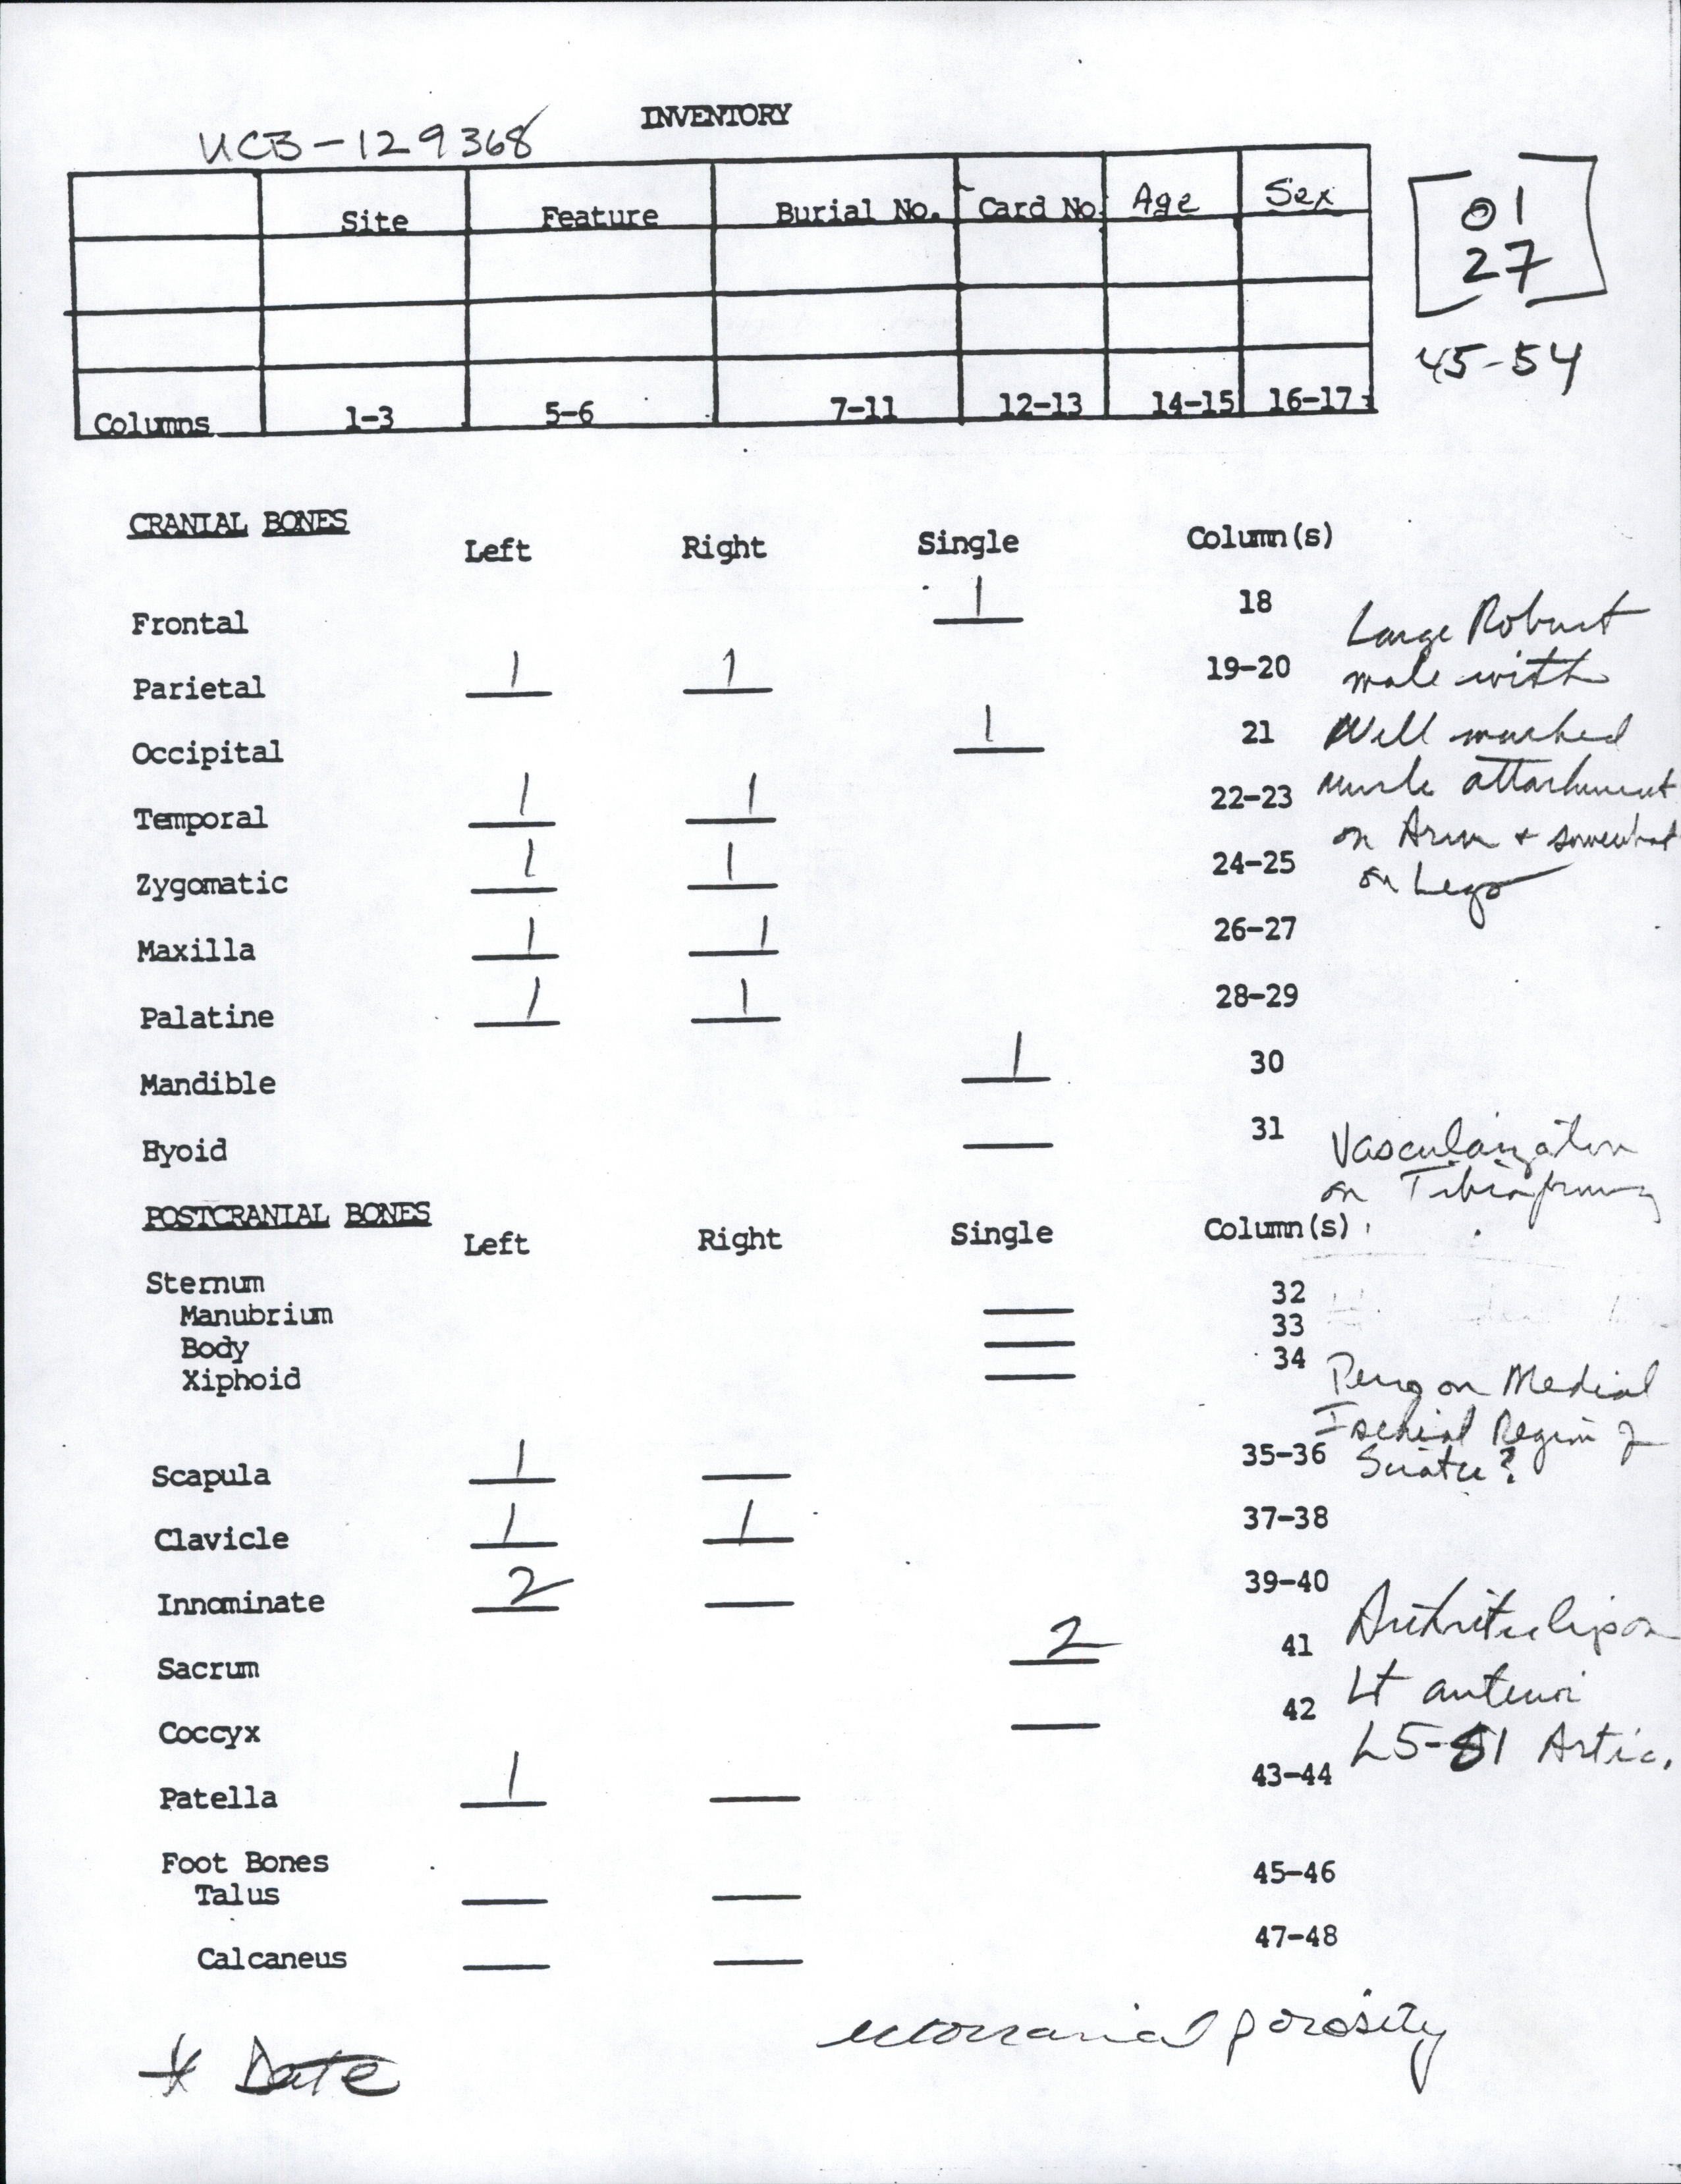 INVENTORY
UCB-129368
Site Feature Burial No. Card No. Age Sex
01
27
45-54
Columns 1-3 5-6 7-11 12-13 14-15 16-17
CRANIAL BONES
Left Right Single Column(s)
Frontal 1 18
Large Robust
Parietal 1 1 19-20
male with
Occipital 1 21
Well marked
Temporal 1 1 22-23
muscle attachment
on Arm + somewhat
Zygomatic 1 1 24-25
on Legs
Maxilla 1 1 26-27
Palatine 1 1 28-29
Mandible 1 30
Hyoid 31
Vascularization
on Tibia
POSTCRANIAL BONES
Left Right Single Column(s)
Sternum
Manubrium 32
Body 33
Xiphoid 34
on Medial
Ischial Region of
Sciatic?
Scapula 1 35-36
Clavicle 1 1 37-38
Innominate 2 39-40
Arthritic lip on
Sacrum 2 41
Lt anterior
Coccyx 42
L5-S1 Artic.
Patella 1 43-44
Foot Bones
Talus 45-46
Calcaneus 47-48
ectocranial porosity
* Date